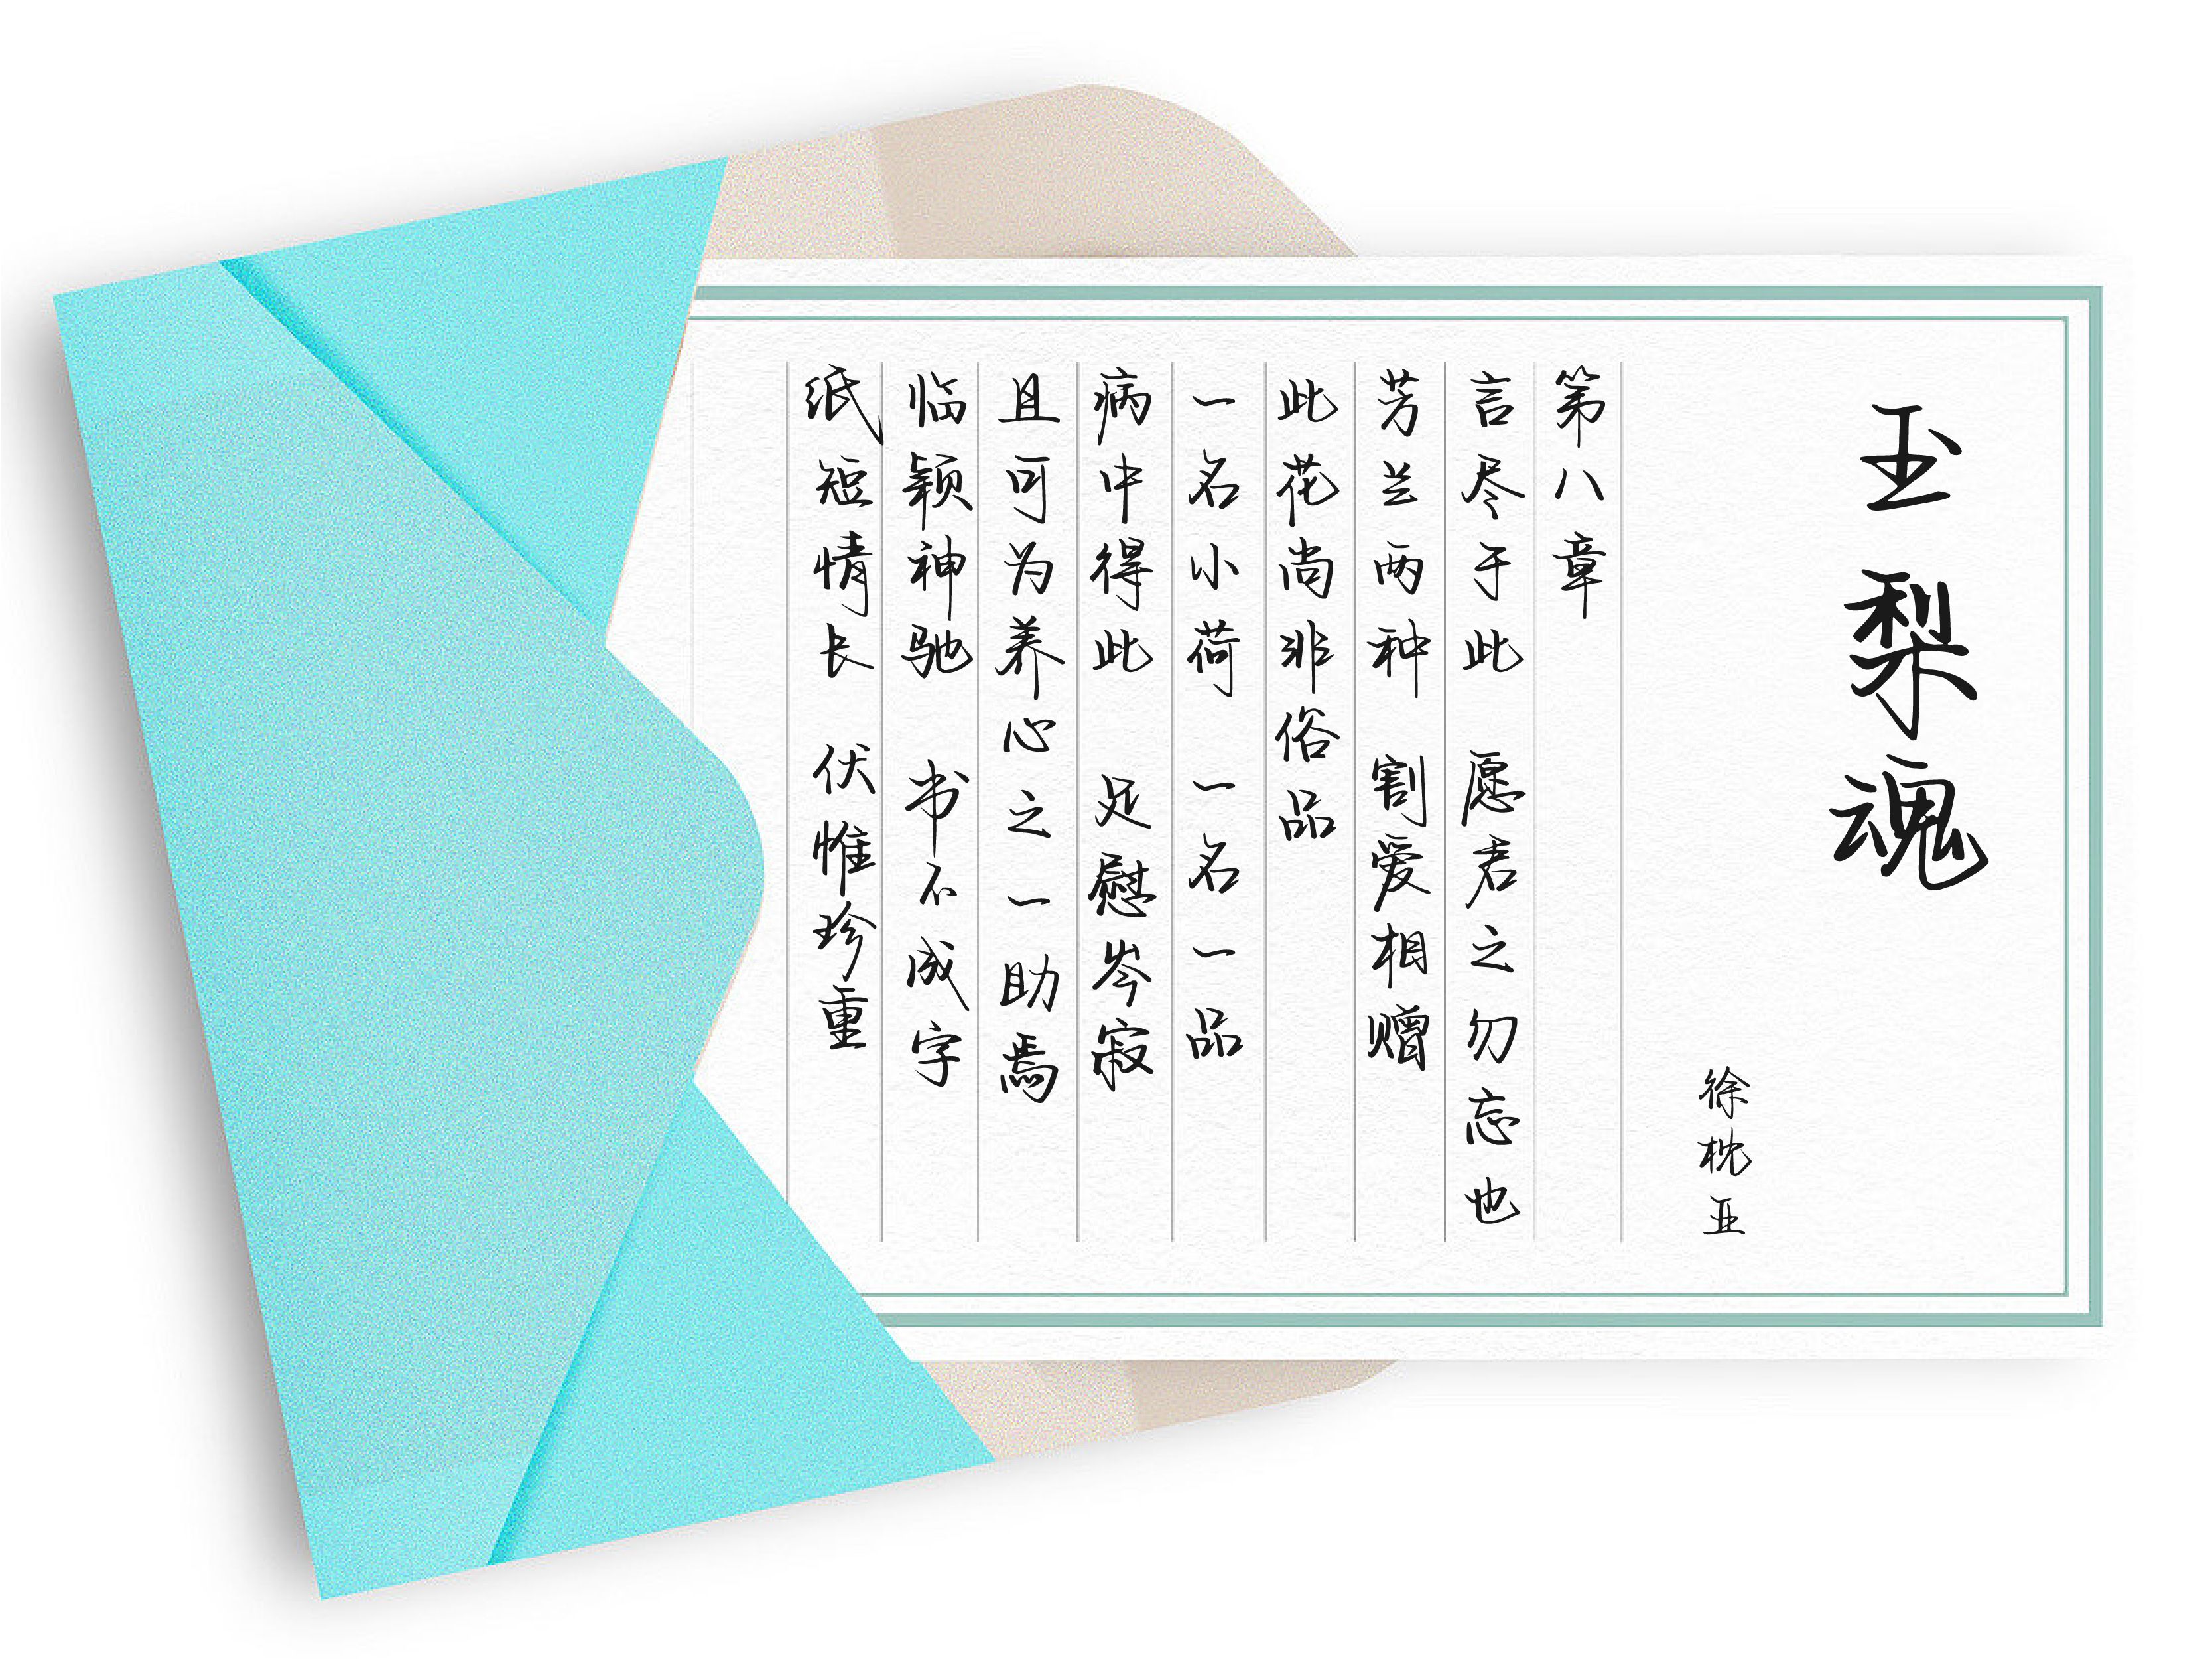 玉梨魂
徐枕亚
第八章
言尽于此 愿君之勿忘也
芳兰两种 割爱相赠
此花尚非俗品
一名小荷 一名一品
病中得此 足慰岑寂
且可为养心之一助焉
临颖神驰 书不成字
纸短情长 伏惟珍重